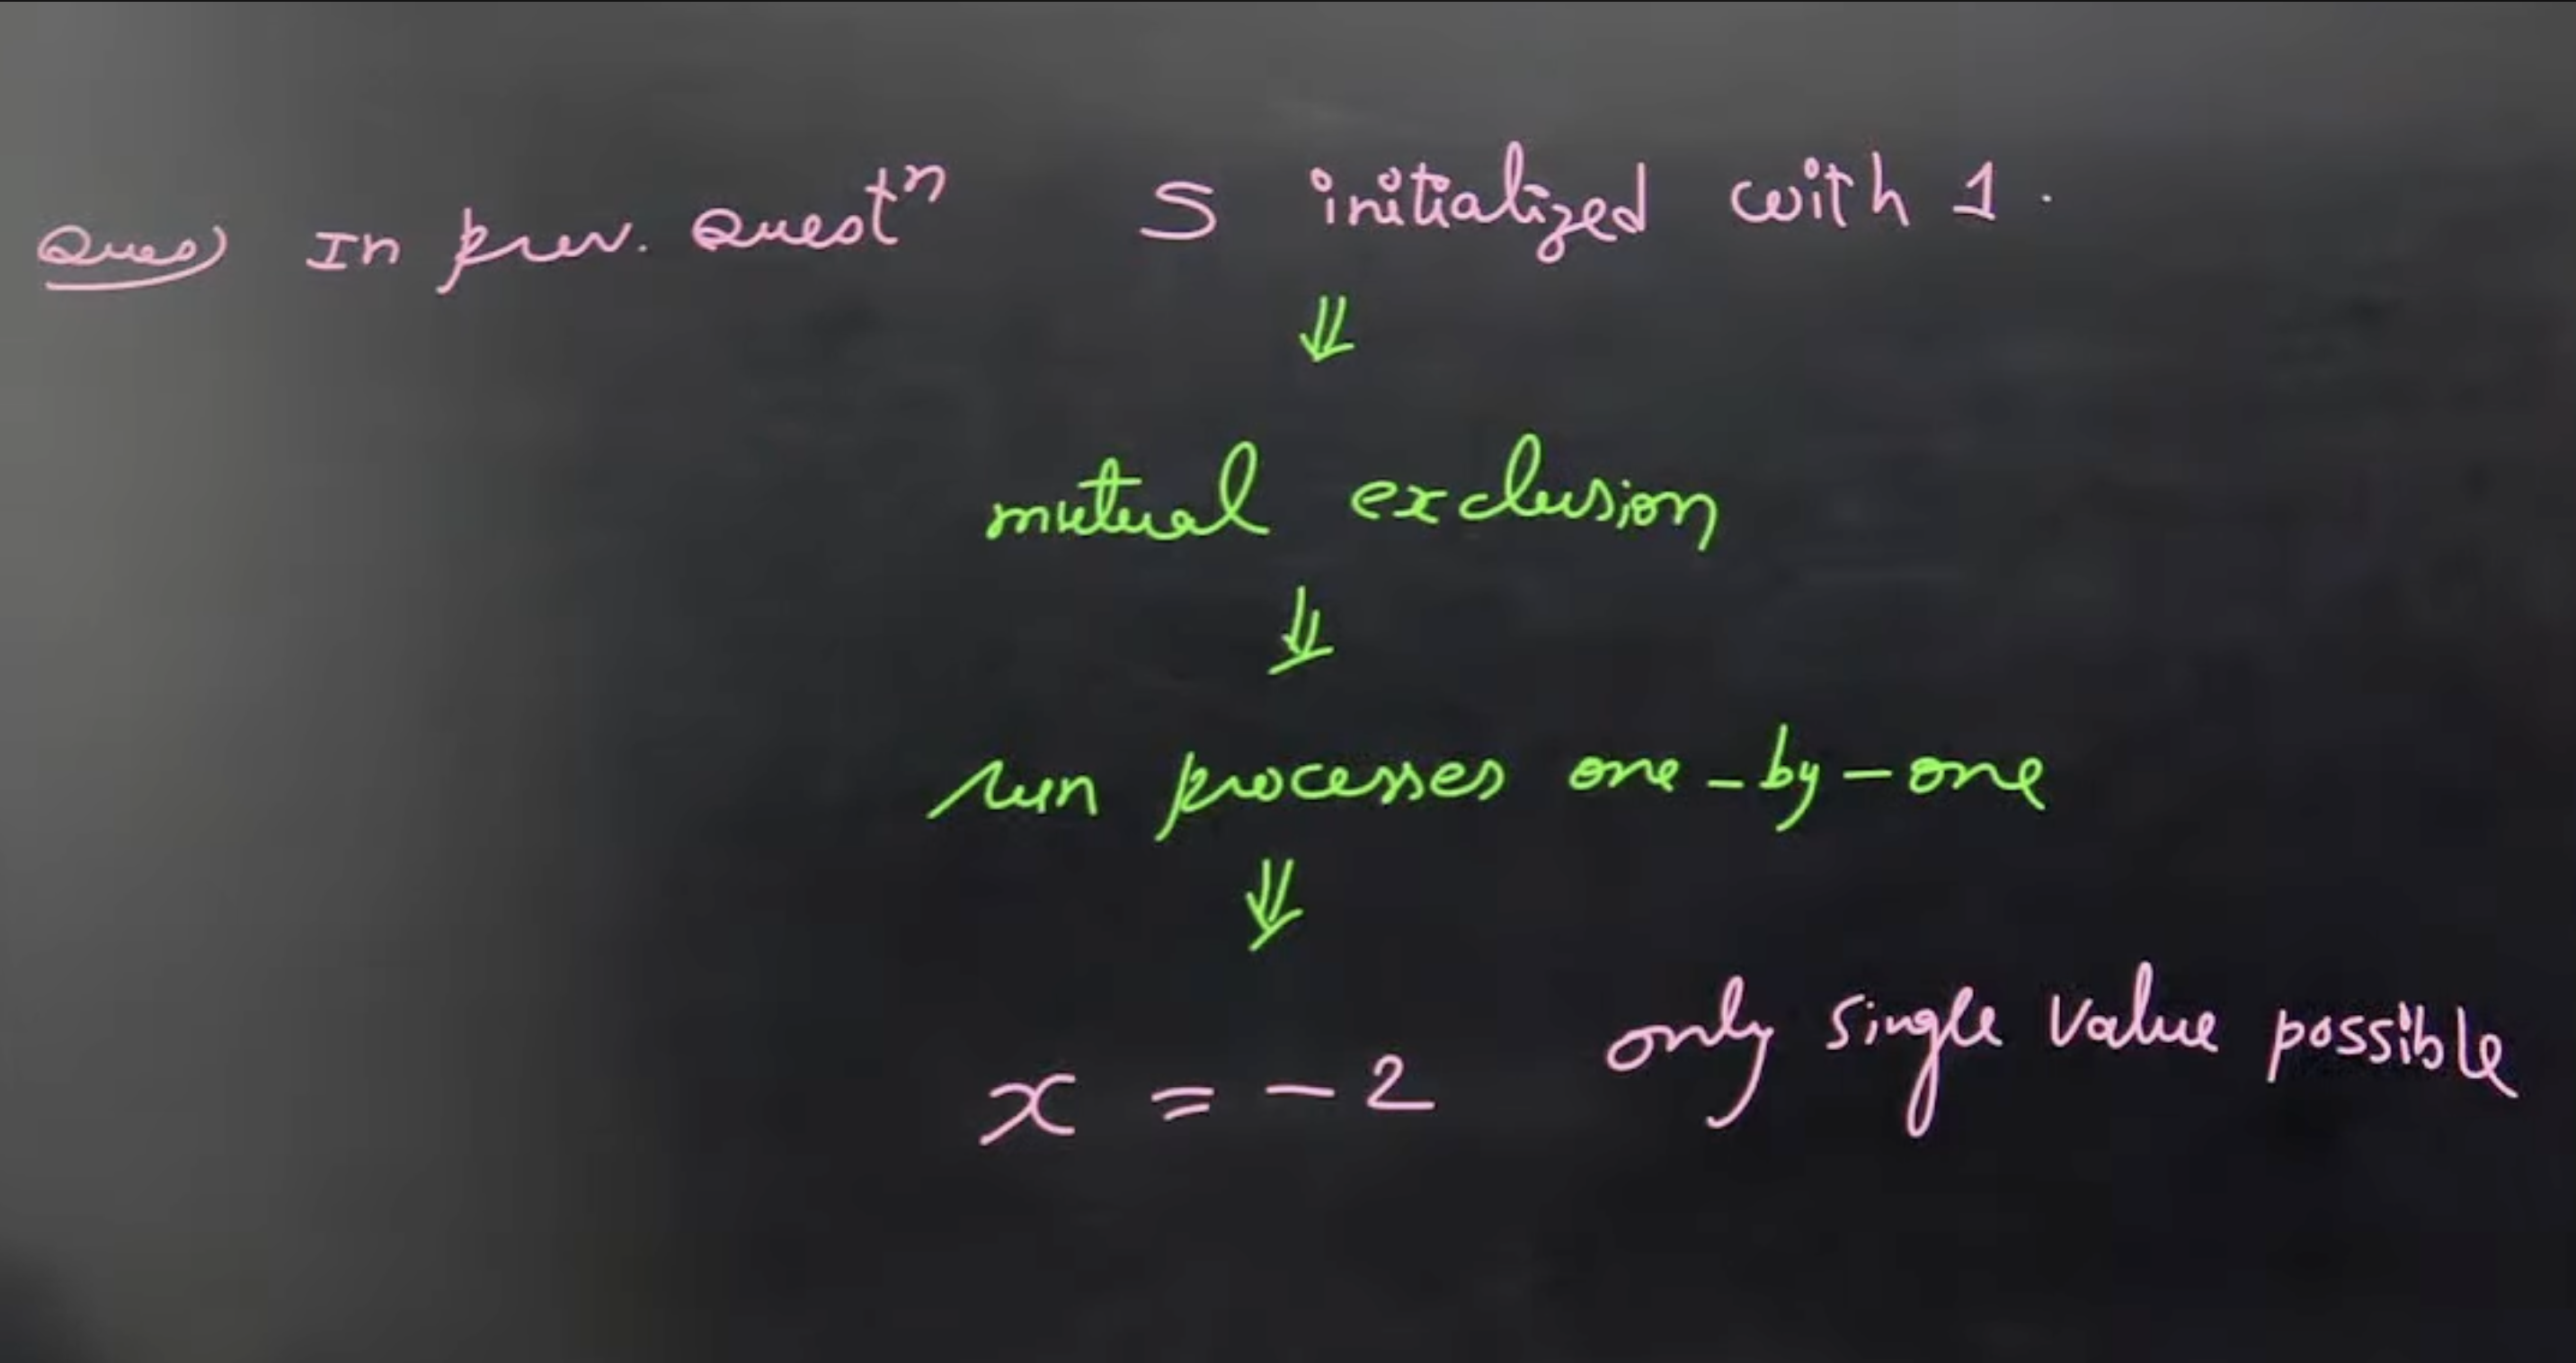 Ques) In prev. Questⁿ S initialized with 1.
⇓
mutual exclusion
⇓
run processes one-by-one
⇓
x = -2 only single value possible